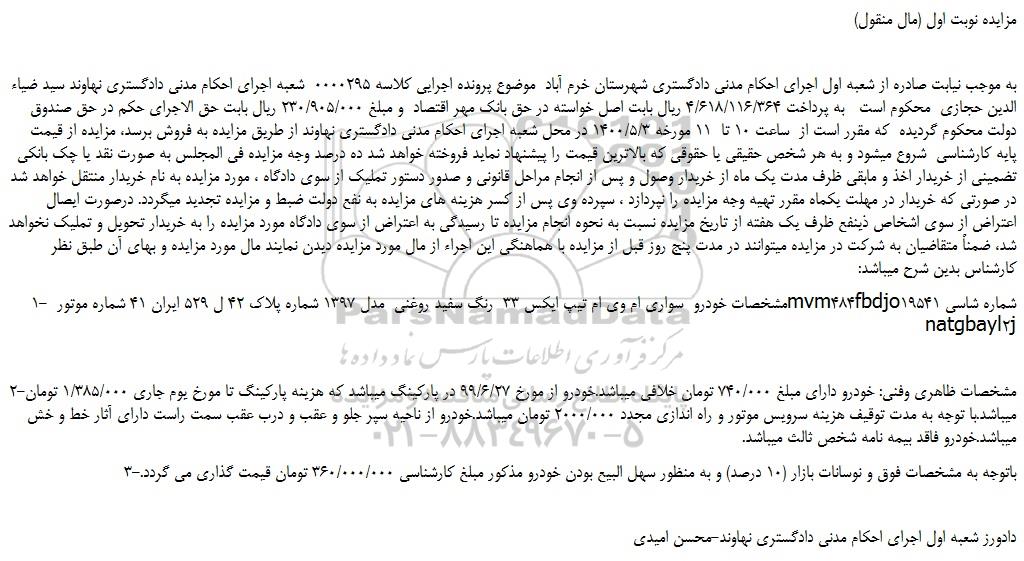 مزایده نوبت اول (مال منقول)
به موجب نیابت صادره از شعبه اول اجرای احکام مدنی دادگستری شهرستان خرم آباد موضوع پرونده اجرایی کلاسه ۰۰۰۰۲۹۵ شعبه اجرای احکام مدنی دادگستری نهاوند سید ضیاء
الدین حجازی محکوم است به پرداخت ۴/۶۱۸/۱۱۶/۳۶۴ ریال بابت اصل خواسته در حق بانک مهر اقتصاد و مبلغ ۲۳۰/۹۰۵/۰۰۰ ریال بابت حق الاجرای حکم در حق صندوق
دولت محکوم گردیده که مقرر است از ساعت ۱۰ تا ۱۱ مورخه ۱۴۰۰/۵/۳ در محل شعبه اجرای احکام مدنی دادگستری نهاوند از طریق مزایده به فروش برسد، مزایده از قیمت
پایه کارشناسی شروع میشود و به هر شخص حقیقی یا حقوقی که بالاترین قیمت را پیشنهاد نماید فروخته خواهد شد ده درصد وجه مزایده فی المجلس به صورت نقد یا چک بانکی
تضمینی از خریدار اخذ و مابقی ظرف مدت یک ماه از خریدار وصول و پس از انجام مراحل قانونی و صدور دستور تملیک از سوی دادگاه ، مورد مزایده به نام خریدار منتقل خواهد شد
در صورتی که خریدار در مهلت یکماه مقرر تهیه وجه مزایده را نپردازد ، سپرده وی پس از کسر هزینه های مزایده به نفع دولت ضبط و مزایده تجدید میگردد. درصورت ایصال
اعتراض از سوی اشخاص ذینفع ظرف یک هفته از تاریخ مزایده نسبت به نحوه انجام مزایده تا رسیدگی به اعتراض از سوی دادگاه مورد مزایده را به خریدار تحویل و تملیک نخواهد
شد، ضمناً متقاضیان به شرکت در مزایده میتوانند در مدت پنج روز قبل از مزایده با هماهنگی این اجراء از مال مورد مزایده دیدن نمایند مال مورد مزایده و بهای آن طبق نظر
کارشناس بدین شرح میباشد:
شماره شاسی mvm۴۸۴fbdjo۱۹۵۴۱مشخصات خودرو سواری ام وی ام تیپ ایکس ۳۳ رنگ سفید روغنی مدل ۱۳۹۷ شماره پلاک ۴۲ ل ۵۲۹ ایران ۴۱ شماره موتور -۱
natgbayl۲j
ParsNamadData
مرکز فرآوری اطلاعات پارس نماد داده ها
مشخصات ظاهری وفنی: خودرو دارای مبلغ ۷۴۰/۰۰۰ تومان خلافی میباشد.خودرو از مورخ ۹۹/۶/۲۷ در پارکینگ میباشد که هزینه پارکینگ تا مورخ یوم جاری ۱/۳۸۵/۰۰۰ تومان-۲
میباشد.با توجه به مدت توقیف هزینه سرویس موتور و راه اندازی مجدد ۲۰۰۰/۰۰۰ تومان میباشد.خودرو از ناحیه سپر جلو و عقب و درب عقب سمت راست دارای آثار خط و خش
میباشد.خودرو فاقد بیمه نامه شخص ثالث میباشد.
۰۲۱-۸۸۳۴۹۶۷۰-۵
باتوجه به مشخصات فوق و نوسانات بازار (۱۰ درصد) و به منظور سهل البیع بودن خودرو مذکور مبلغ کارشناسی ۳۶۰/۰۰۰/۰۰۰ تومان قیمت گذاری می گردد.-۳
دادورز شعبه اول اجرای احکام مدنی دادگستری نهاوند-محسن امیدی